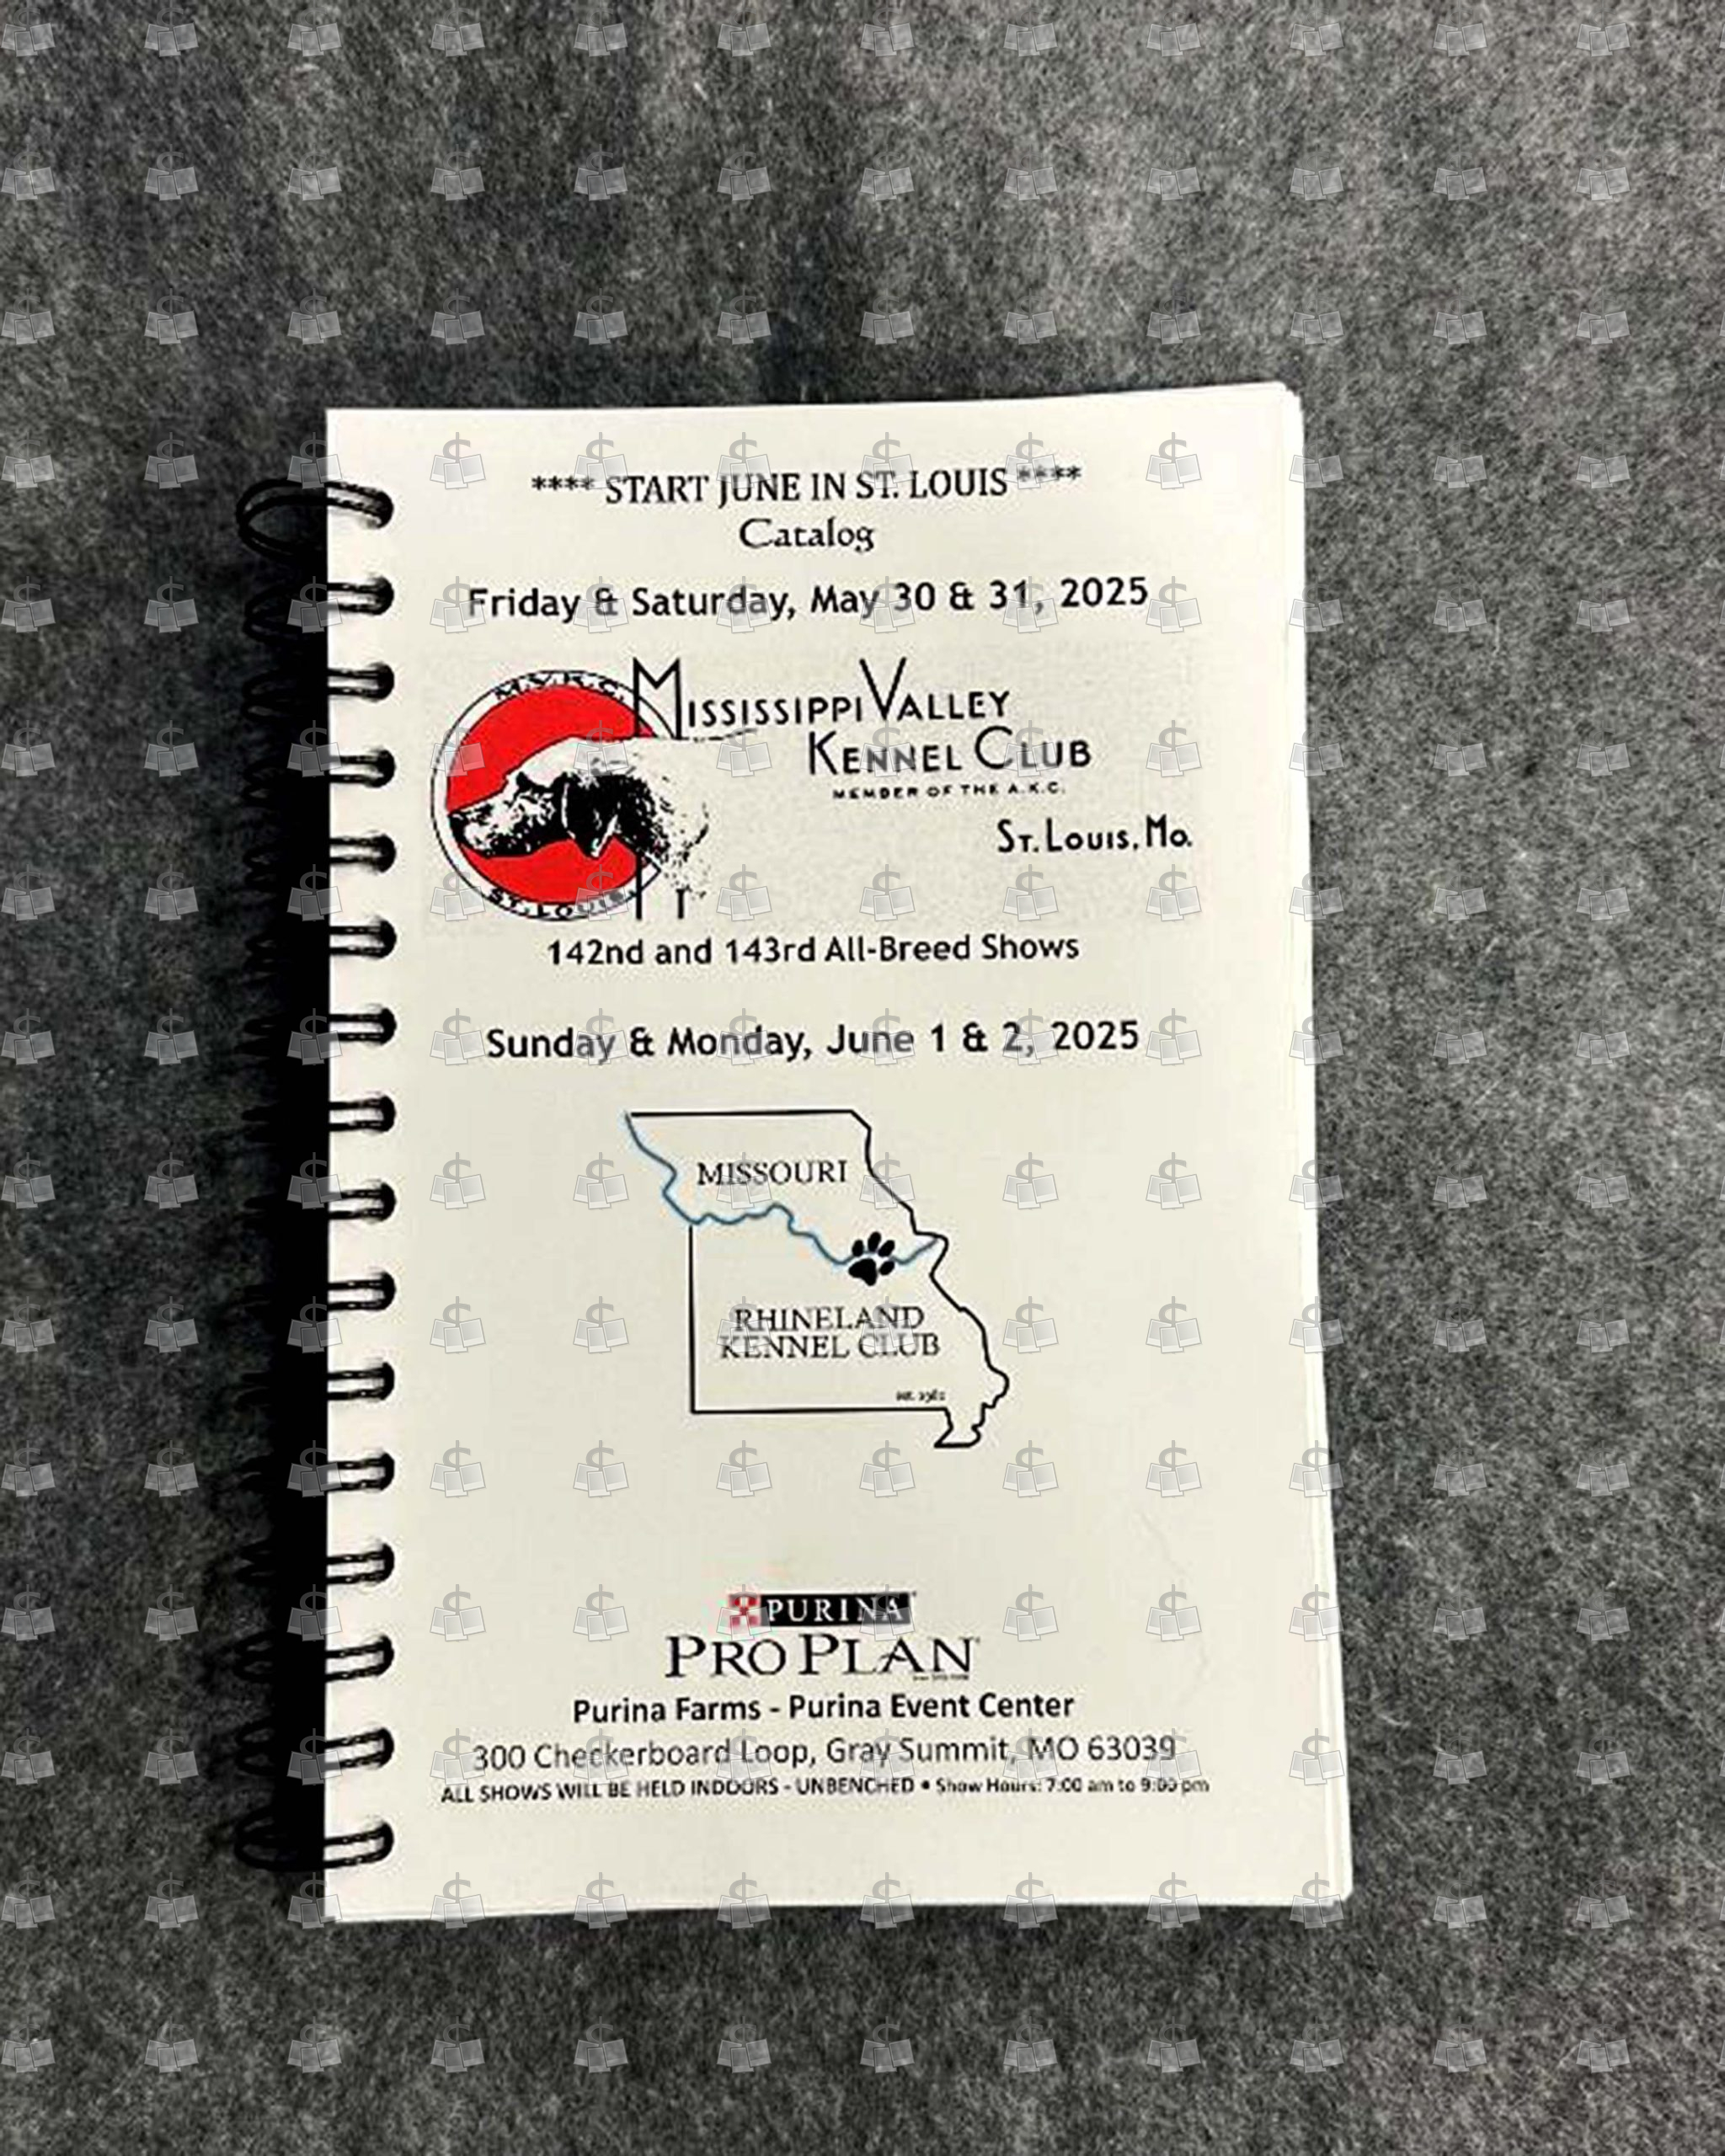 **** START JUNE IN ST. LOUIS ****
Catalog
Friday & Saturday, May 30 & 31, 2025
M.V.K.C.
MISSISSIPPI VALLEY
KENNEL CLUB
MEMBER OF THE A.K.C.
ST. LOUIS, MO.
ST. LOUIS
142nd and 143rd All-Breed Shows
Sunday & Monday, June 1 & 2, 2025
MISSOURI
RHINELAND
KENNEL CLUB
PURINA
PRO PLAN
Purina Farms - Purina Event Center
300 Checkerboard Loop, Gray Summit, MO 63039
ALL SHOWS WILL BE HELD INDOORS - UNBENCHED • Show Hours: 7:00 am to 9:00 pm